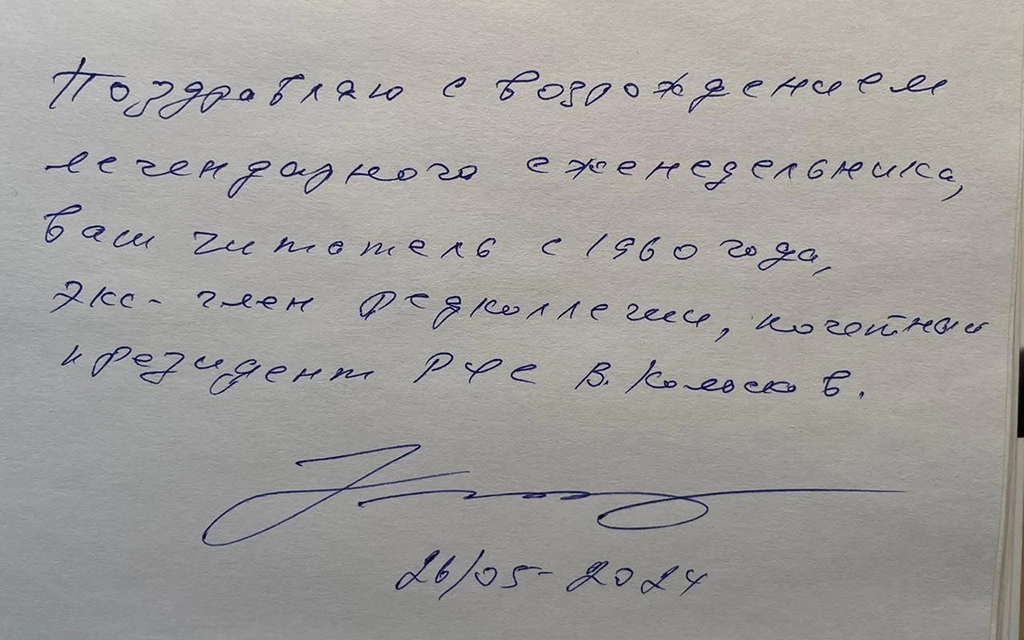 Поздравляю с возрождением
легендарного еженедельника,
ваш читатель с 1960 года,
экс-член редколлегии, почетный
президент РФС В. Колосков.
26/05-2024